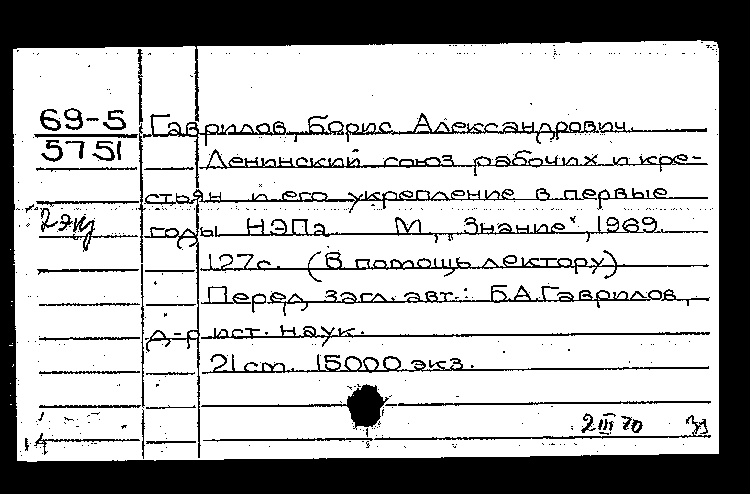 69-5
5751
Гаврилов, Борис Александрович.
Ленинский союз рабочих и кре-
стьян и его укрепление в первые
2 экз
годы НЭПа. М., „Знание", 1969.
127с. (В помощь лектору)
Перед загл. авт.: Б.А.Гаврилов,
д-р ист. наук.
21 см. 15000 экз.
2 III 70
14